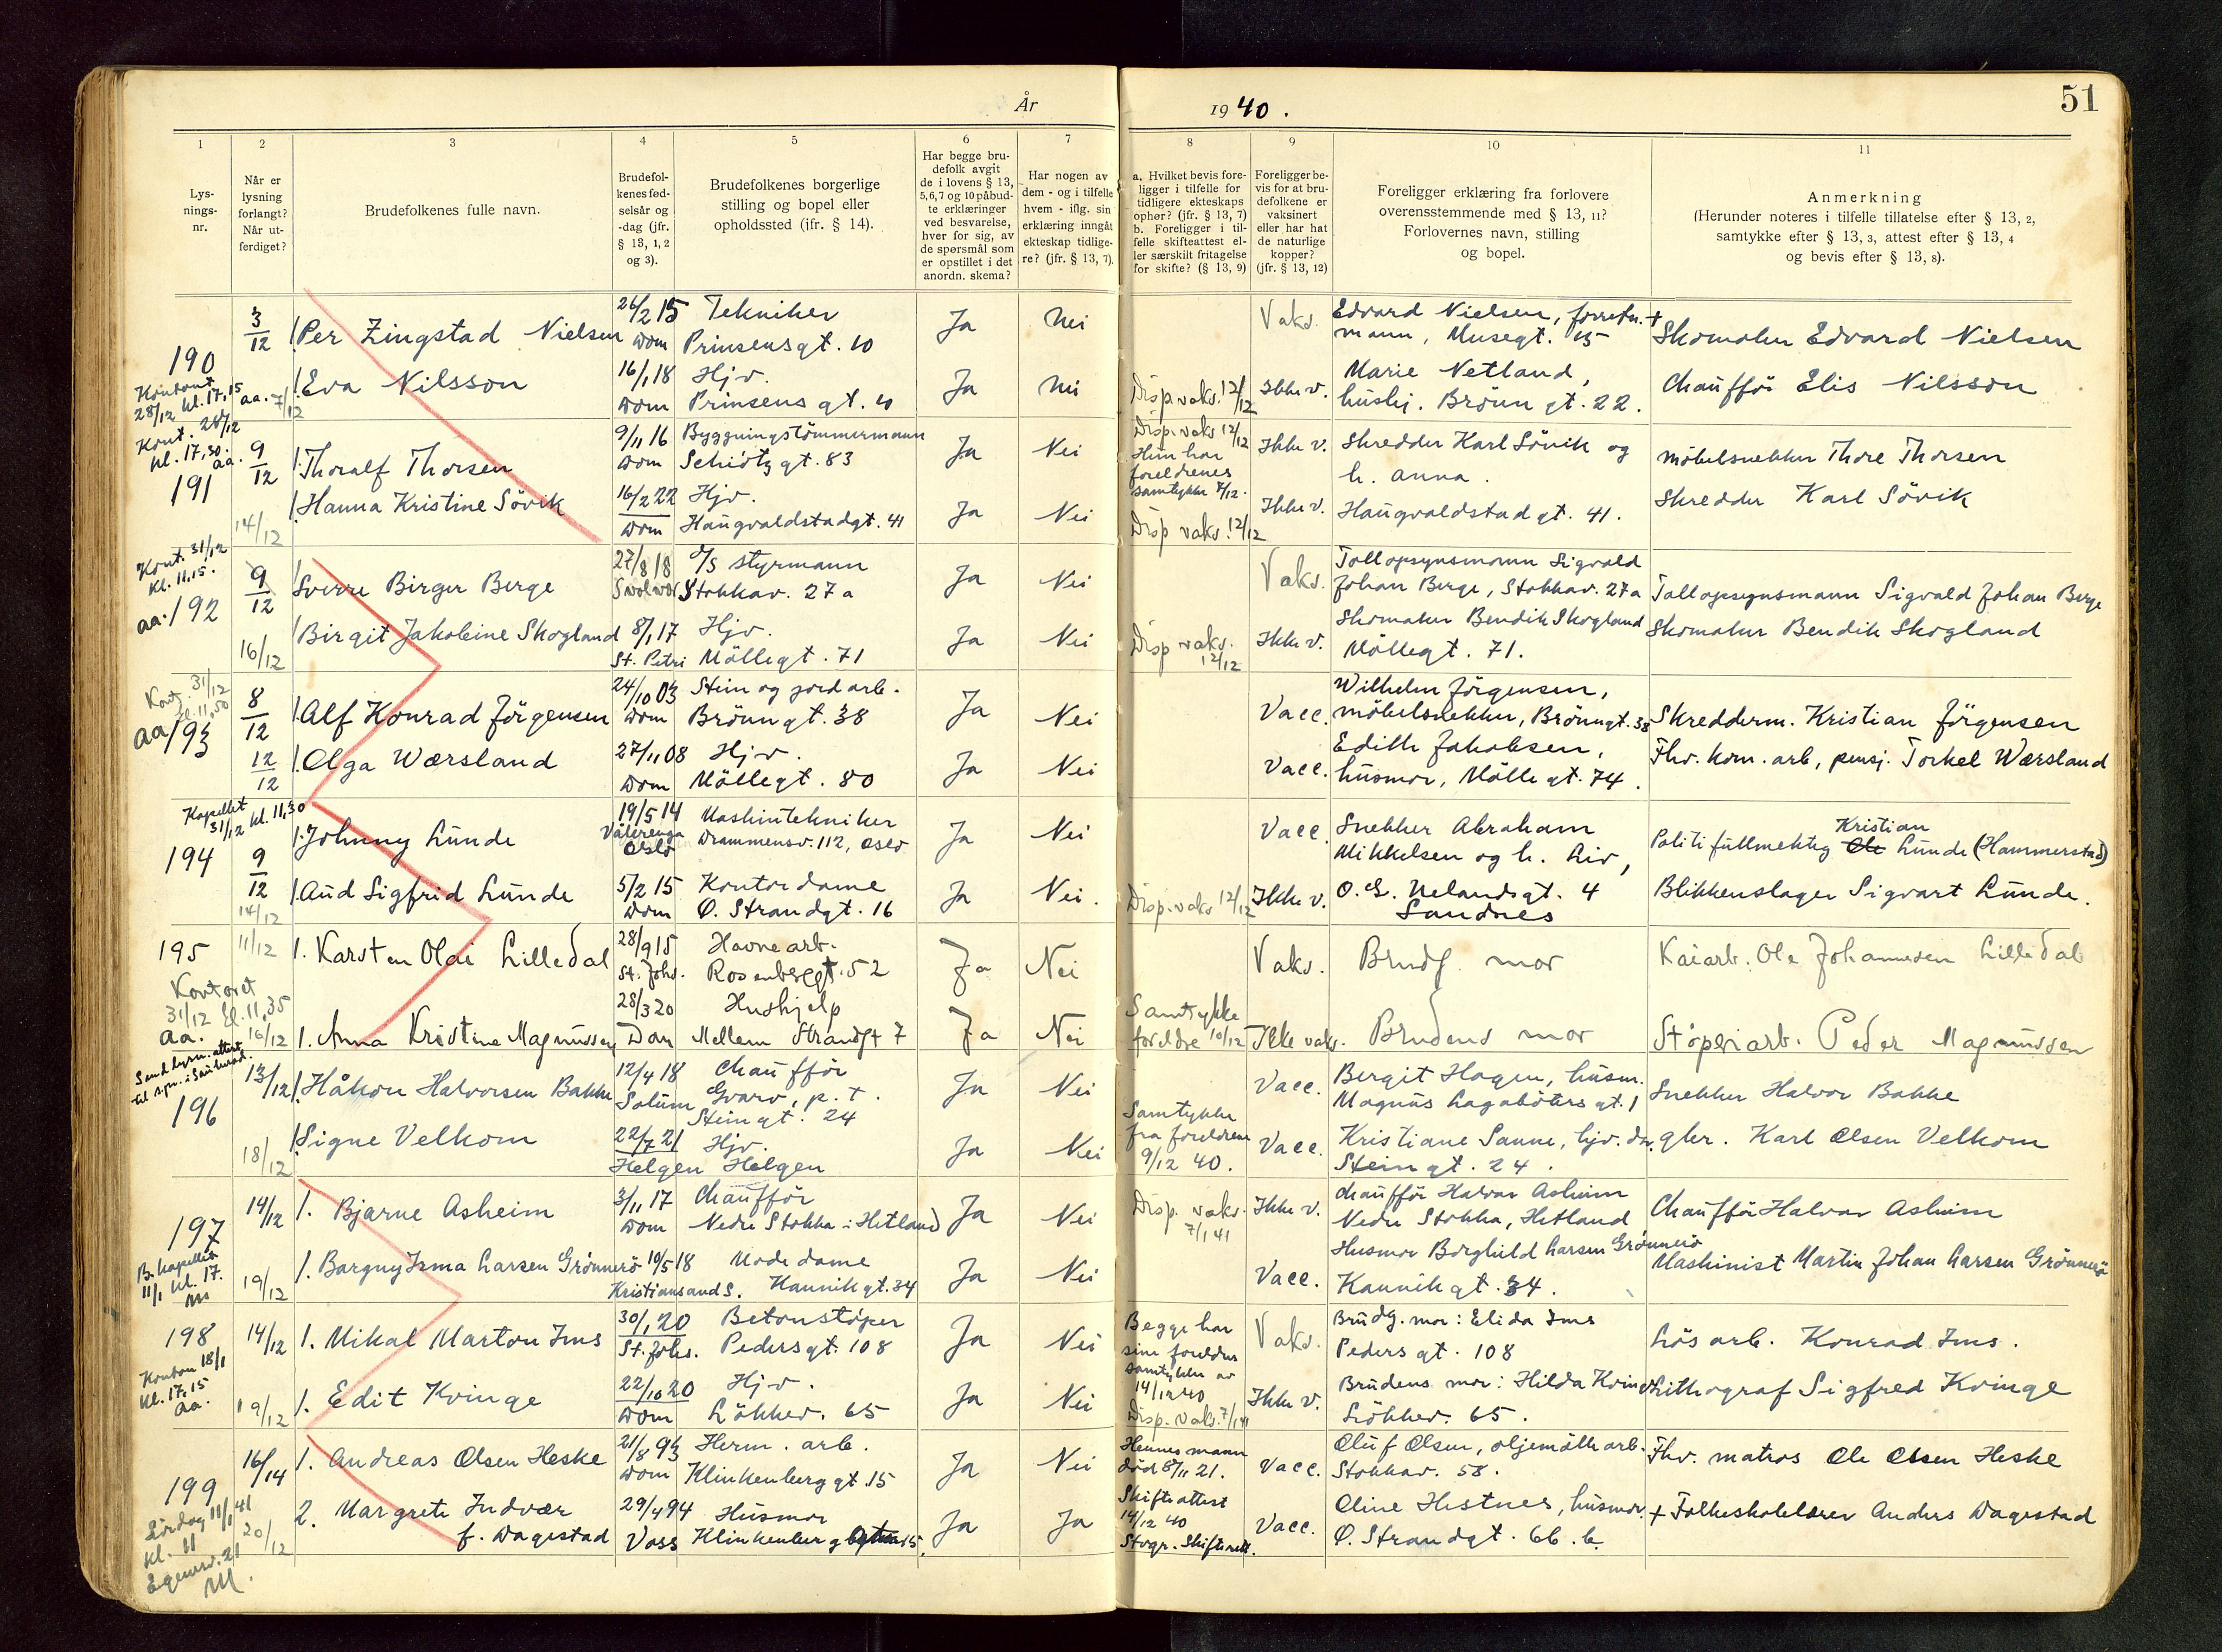 År 1940. 51
1 2 3 4 5 6 7 8 9 10 11
Lys-
nings-
nr.
Når er
lysning
forlangt?
Når ut-
ferdiget?
Brudefolkenes fulle navn.
Brudefol-
kenes fød-
selsår og
-dag (jfr.
§ 13, 1, 2
og 3).
Brudefolkenes borgerlige
stilling og bopel eller
opholdssted (jfr. § 14).
Har begge bru-
defolk avgit
de i lovens § 13,
5,6,7 og 10 påbud-
te erklæringer
ved besvarelse,
hver for sig, av
de spørsmål som
er opstillet i det
anordn. skema?
Har nogen av
dem - og i tilfelle
hvem - iflg. sin
erklæring inngåt
ekteskap tidlige-
re? (jfr. § 13, 7).
a. Hvilket bevis fore-
ligger i tilfelle for
tidligere ekteskaps
ophør? (jfr. § 13, 7)
b. Foreligger i til-
felle skifteattest el-
ler særskilt fritagelse
for skifte? (§ 13, 9)
Foreligger be-
vis for at bru-
defolkene er
vaksinert
eller har hat
de naturlige
kopper?
(jfr. § 13, 12)
Foreligger erklæring fra forlovere
overensstemmende med § 13, 11?
Forlovernes navn, stilling
og bopel.
Anmerkning
(Herunder noteres i tilfelle tillatelse efter § 13, 2,
samtykke efter § 13, 3, attest efter § 13, 4
og bevis efter § 13, 8).
190
Kontoret
28/12 kl. 17,15
aa.
3/12
7/12
1. Per Zingstad Nielsen
26/2 15
Dom
Tekniker
Prinsensgt. 10
Ja
Nei
Vaks.
Edvard Nielsen, forretn.
mann, Musegt. 15
+ Skomaker Edvard Nielsen
1. Eva Nilsson
16/1 18
Dom
Hjv.
Prinsensgt. 10
Ja
Nei
Disp. vaks. 12/12
Ikke v.
Marie Netland,
hushj. Brönngt. 22.
Chaufför Elis Nilsson
Kont. 28/12
kl. 17,30.
aa.
191
9/12
14/12
1. Thoralf Thorsen
9/11 16
Dom
Byggningstömmermann
Schiötzgt. 83
Ja
Nei
Disp. vaks 12/12
Hun har
foreldrenes
samtykke 7/12.
Ikke v.
Skredder Karl Sövik og
h. Anna.
Möbelsnekker Thore Thorsen
1. Hanna Kristine Sövik
16/2 22
Dom
Hjv.
Haugvaldstadgt. 41
Ja
Nei
Disp vaks. 12/12
Ikke v.
Haugvaldstadgt. 41.
Skredder Karl Sövik
Kont. 31/12
kl. 11.15.
aa. 192
9/12
16/12
1. Sverre Birger Berge
27/8 18
Svolvær
D/S styrmann
Stokkav. 27a
Ja
Nei
Vaks.
Tollopsynsmann Sigvald
Johan Berge, Stokkav. 27a
Tollopsynsmann Sigvald Johan Berge
1. Birgit Jakobine Skogland
8/1 17
St. Petri
Hjv.
Möllegt. 71
Ja
Nei
Disp vaks.
12/12
Ikke v.
Skomaker Bendik Skogland
Möllegt. 71.
Skomaker Bendik Skogland
Kont. 31/12
kl. 11,50
aa 193
8/12
12/12
1. Alf Konrad Jörgensen
24/10 03
Dom
Stein og jordarb.
Brönngt. 38
Ja
Nei
Vacc.
Wilhelm Jörgensen,
möbelsnekker, Brönngt. 38
Skredderm. Kristian Jörgensen
1. Olga Wærsland
27/11 08
Dom
Hjv.
Möllegt. 80
Ja
Nei
Vacc.
Edith Jakobsen,
husmor, Möllegt. 74.
Fhv. kom. arb, pensj. Torkel Wærsland
Kapellet
31/12 kl. 11,30
194
9/12
14/12
1. Johnny Lunde
19/5 14
Vålerenga
Oslo
Maskintekniker
Drammensv. 112, Oslo
Ja
Nei
Vacc.
Snekker Abraham
Mikkelsen og h. Liv,
Kristian
Politifullmektig Ole Lunde (Hammerstad)
1. Aud Sigfrid Lunde
5/2 15
Dom
Kontordame
Ö. Strandgt. 16
Ja
Nei.
Disp. vaks 12/12
Ikke v.
O. G. Uelandsgt. 4
Sandnes
Blikkenslager Sigvart Lunde.
195
Kontoret
31/12 kl. 11,35
aa.
11/12
16/12
1. Karsten Olai Lilledal
28/9 15
St. Johs.
Havnearb.
Rosenberggt. 52
Ja
Nei
Vaks.
Brudg. mor
Kaiarb. Ole Johannesen Lilledal
1. Anna Kristine Magnussen
28/3 20
Dom
Hushjelp
Mellem Strandgt 7
Ja
Nei
Samtykke
foreldre 10/12
Ikke vaks.
Brudens mor
Stöperiarb. Peder Magnussen
Send lysn. attest
til spr. i Sauherad.
196
13/12
18/12
1. Håkon Halvorsen Bakke
12/4 18
Solum
Chaufför
Gvarv, p. t.
Steingt. 24
Ja
Nei
Vacc.
Bergit Hagen, husm.
Magnus Lagabötersgt. 1
Snekker Halvor Bakke
1. Signe Velkom
22/7 21
Helgen
Hjv.
Helgen
Ja
Nei
Samtykke
fra foreldrene
9/12 40.
Vacc.
Kristiane Sanne, hjv. do.
Steingt. 24.
gbr. Karl Olsen Velkom
197
B. kapellet
11/1 kl. 17.
14/12
19/12
1. Bjarne Asheim
3/11 17
Dom
Chaufför
Nedre Stokka i Hetland
Ja
Nei
Disp. vaks.
7/1 41
Ikke v.
Chaufför Halvar Asheim
Nedre Stokka, Hetland
Chaufför Halvar Asheim
1. Borgny Irma Larsen Grönnerö
10/5 18
Kristiansand S.
Modedame
Kannikgt. 34
Ja
Nei
Vacc.
Husmor Borghild Larsen Grönnerö
Kannikgt. 34.
Maskinist Martin Johan Larsen Grönnerö
198
Kontoret 18/1
kl. 17,15
aa.
14/12
19/12
1. Mikal Marton Ims
30/1 20
St. Johs.
Betonstöper
Pedersgt. 108
Ja
Nei
Begge har
sine foreldres
samtykke av
14/12 40
Vaks.
Brudg. mor: Elida Ims
Pedersgt. 108
Lösarb. Konrad Ims.
1. Edit Kvinge
22/10 20
Dom
Hjv.
Lökkev. 65
Ja
Nei
Disp. vaks. 7/1 41
Ikke v.
Brudens mor: Hilda Kvinge
Lökkev. 65.
Lithograf Sigfred Kvinge
199
Lördag 11/1 41
kl. 11
Egenesv. 21
16/14
20/12
1. Andreas Olsen Heske
21/8 93
Dom
Herm. arb.
Klinkenberggt. 15
Ja
Nei
Hennes mann
död 8/11 21.
Vacc.
Oluf Olsen, oljemöllearb.
Stokkav. 58.
Fhv. matros Ole Olsen Heske
2. Margrete Indvær
f. Dagestad
29/4 94
Voss
Husmor
Klinkenberggt. 15.
Ja
Ja
Skifteattest
14/12 40
Stvgr. Skifterett.
Vacc.
Oline Hestnes, husmor.
Ö. Strandgt. 66.b.
+ Folkeskolelærer Anders Dagestad